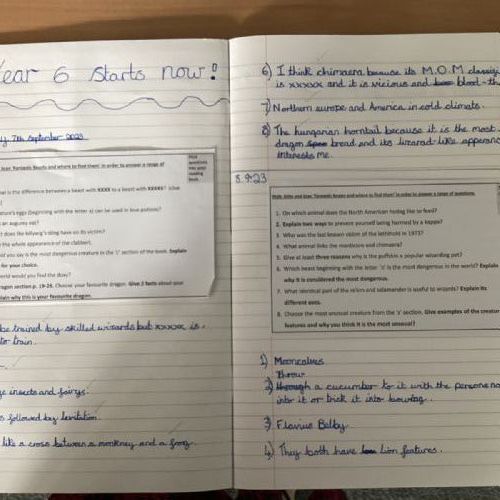 Year 6 starts now!
7th September 2023
Fantastic Beasts and where to find them! in order to answer a range of
is the difference between a beast with XXXX to a beast with XXXXX? Give
eggs (beginning with the letter a) can be used in love potions?
an augurey eat?
does the billywig's sting have on its victim?
the whole appearance of the clabbert.
you say is the most dangerous creature in the 'c' section of the book. Explain
for your choice.
world would you find the
section p. 19-26. Choose your favourite dragon. Give 2 facts about your
why this is your favourite dragon.
be trained by skilled wizards but xxxxx is
to train.
insects and fairys.
followed by levitation.
like a cross between a monkey and a frog.
6) I think chimaera because its M.O.M
is xxxxx and it is vicious and
7) Northern europe and America in cold climats.
8) The hungarian horntail because it is the most
dragon bread and its lizard-like
interests me.
8.9.23
Fantastic Beasts and where to find them! in order to answer a range of questions.
1. On which animal does the North American hodag like to feed?
2. Explain two ways to prevent yourself being harmed by a kappa?
3. Who was the last known victim of the lethifold in 1973?
4. What animal links the manticore and chimaera?
5. Give at least three reasons why is the puffskein a popular wizarding pet?
6. Which beast beginning with the letter is the most dangerous in the world? Explain
why it is considered the most dangerous.
7. What identical part of the re'em and salamander is useful to wizards? Explain its
different uses.
8. Choose the most unusual creature from the 's' section. Give examples of the
features and why you think it is the most unusual?
1) Mooncalves
Throw
2) through a cucumber to it with the persons
into it or trick it into bowing.
3) Flavius Belby.
4) They both have lion features.